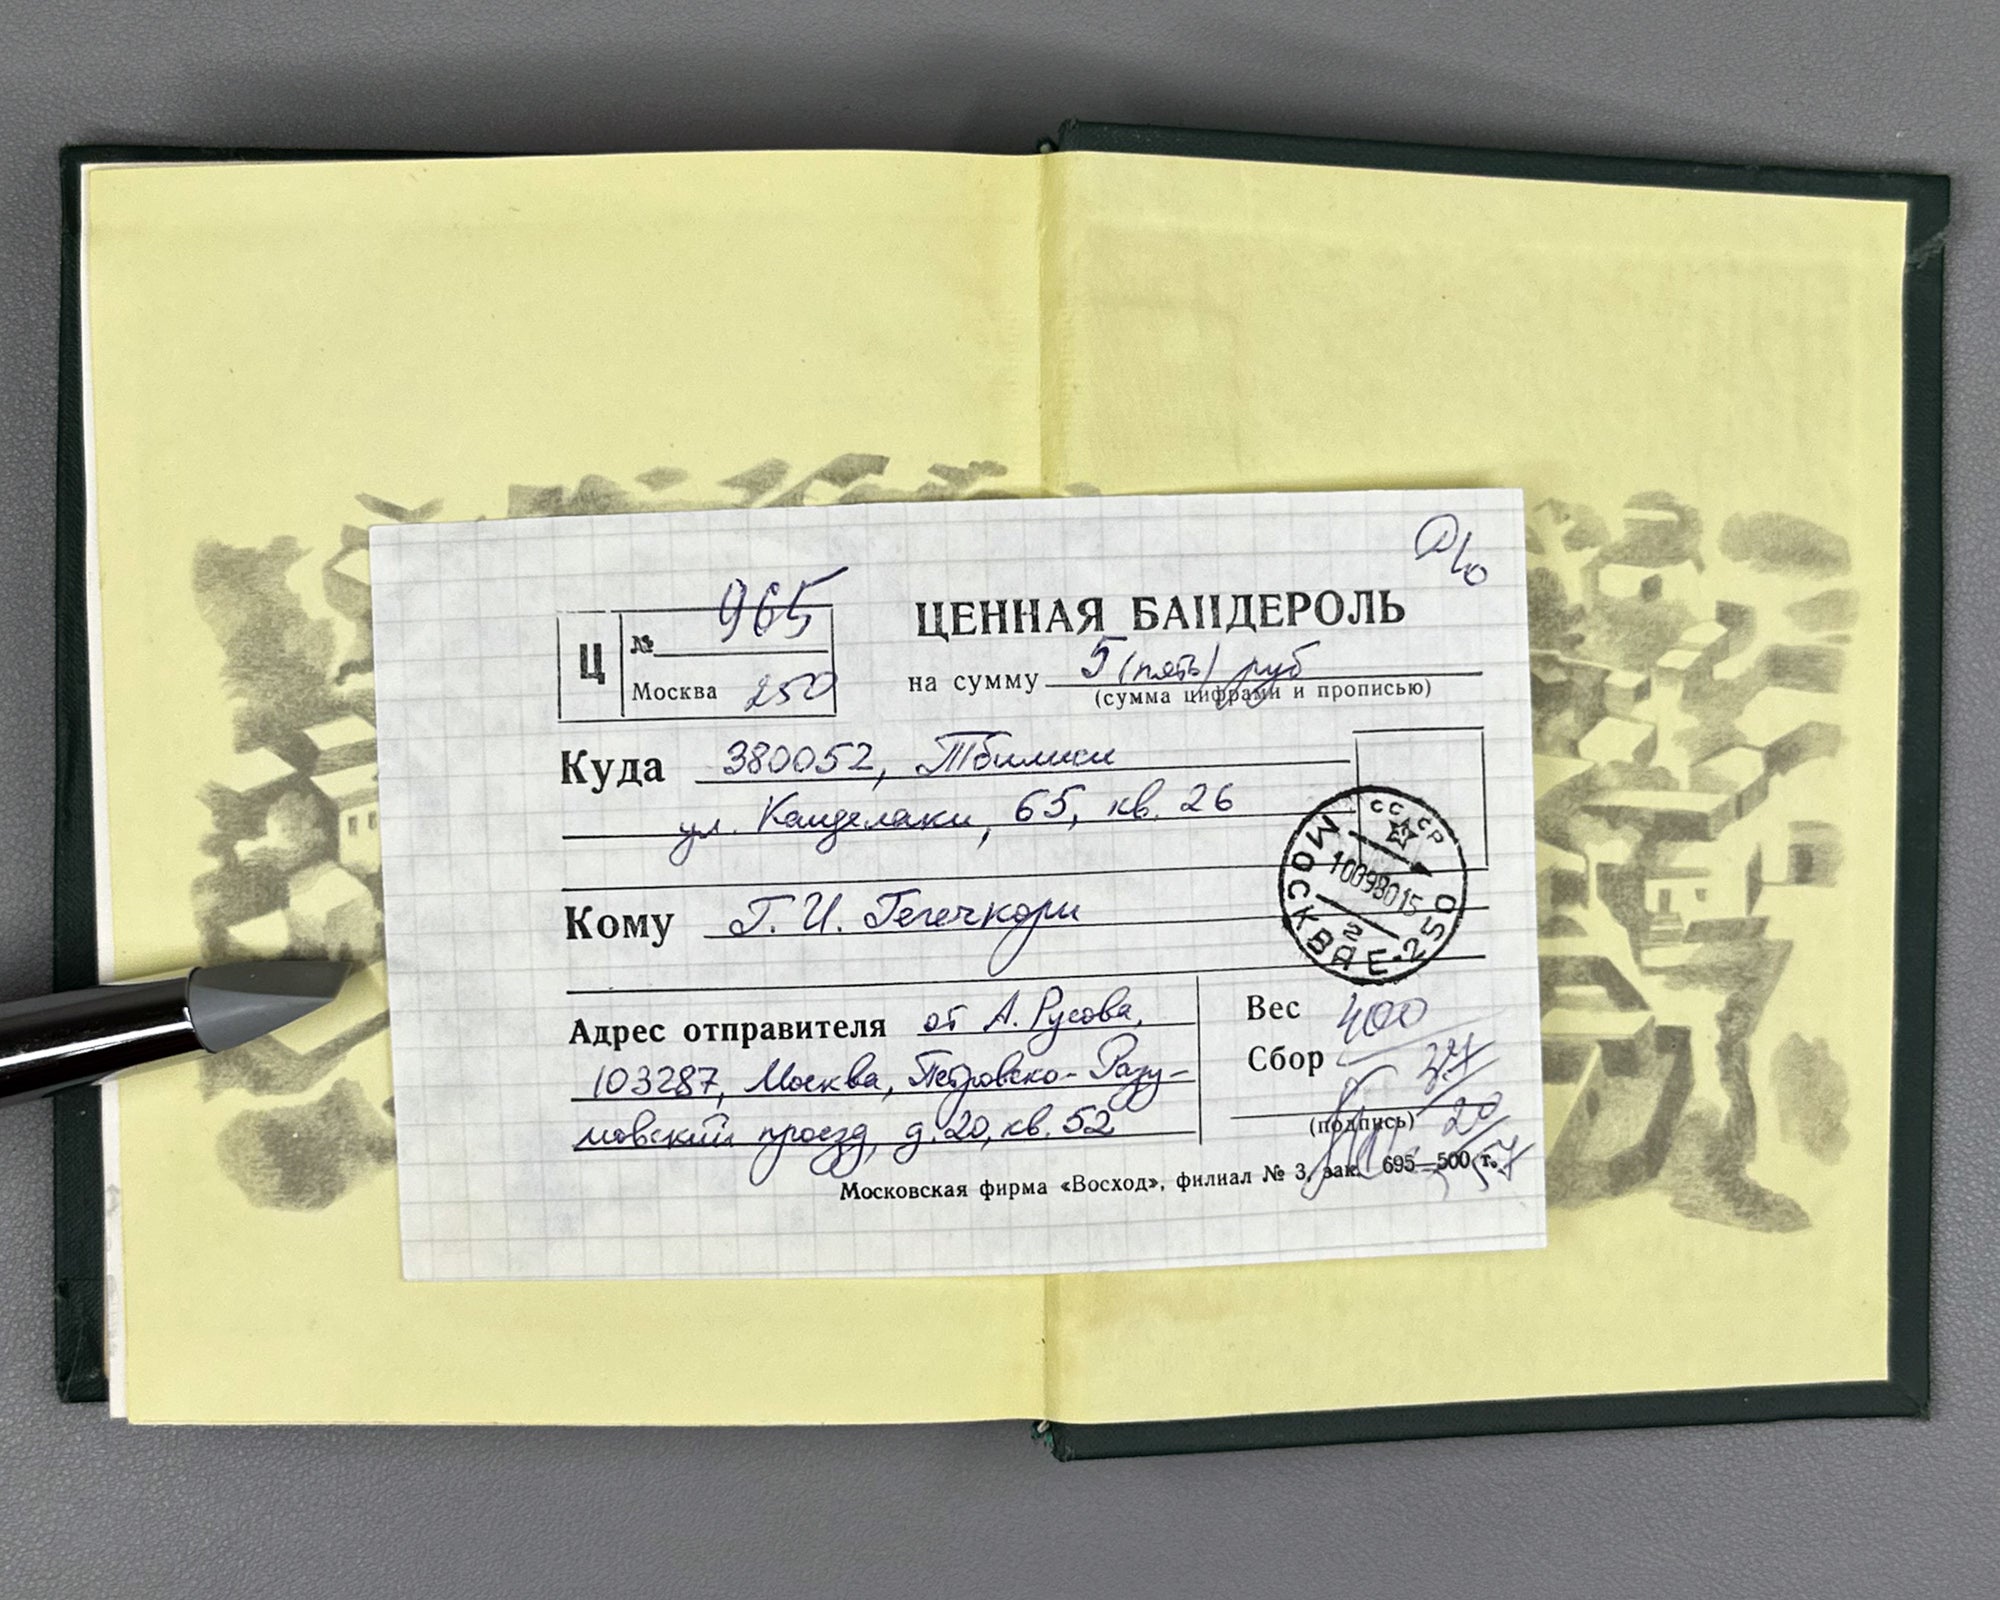 965
ЦЕННАЯ БАНДЕРОЛЬ
Ц №
Москва 250
на сумму 5 (пять) руб
(сумма цифрами и прописью)
Куда 380052, Тбилиси
ул. Канделаки, 65, кв. 26
СССР
МОСКВА Е-250
Кому Г. И. Гегечкори
Адрес отправителя от А. Русова,
103287, Москва, Петровско-Разу-
мовский проезд, д. 20, кв. 52
Вес 400
Сбор 37
20
(подпись)
57
Московская фирма «Восход», филиал № 3, зак. 695—500 т.